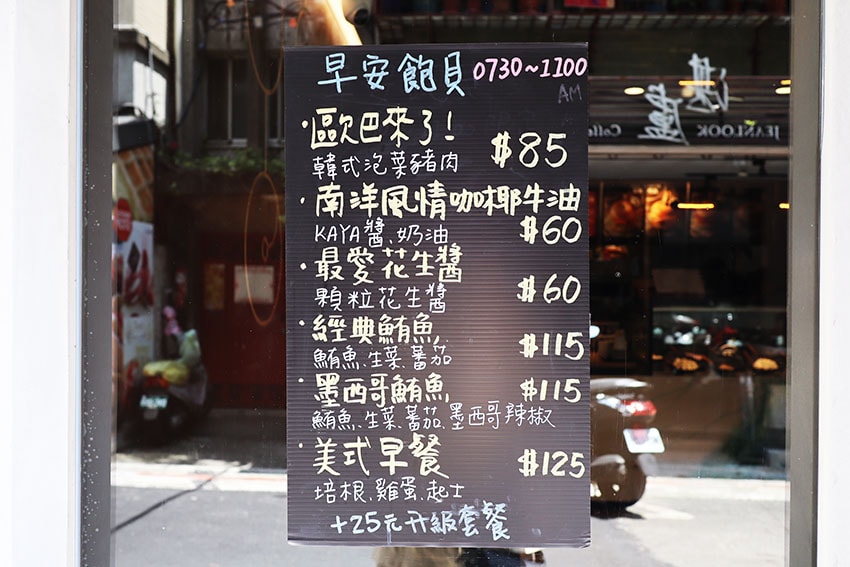 早安飽貝 0730~1100
AM
·歐巴來了! $85
韓式泡菜豬肉
·南洋風情咖椰牛油
KAYA醬、奶油 $60
·最愛花生醬
顆粒花生醬 $60
·經典鮪魚
鮪魚、生菜、蕃茄 $115
·墨西哥鮪魚 $115
鮪魚、生菜、蕃茄、墨西哥辣椒
·美式早餐 $125
培根、雞蛋、起士
+25元升級套餐
JEANLOOK Coffee